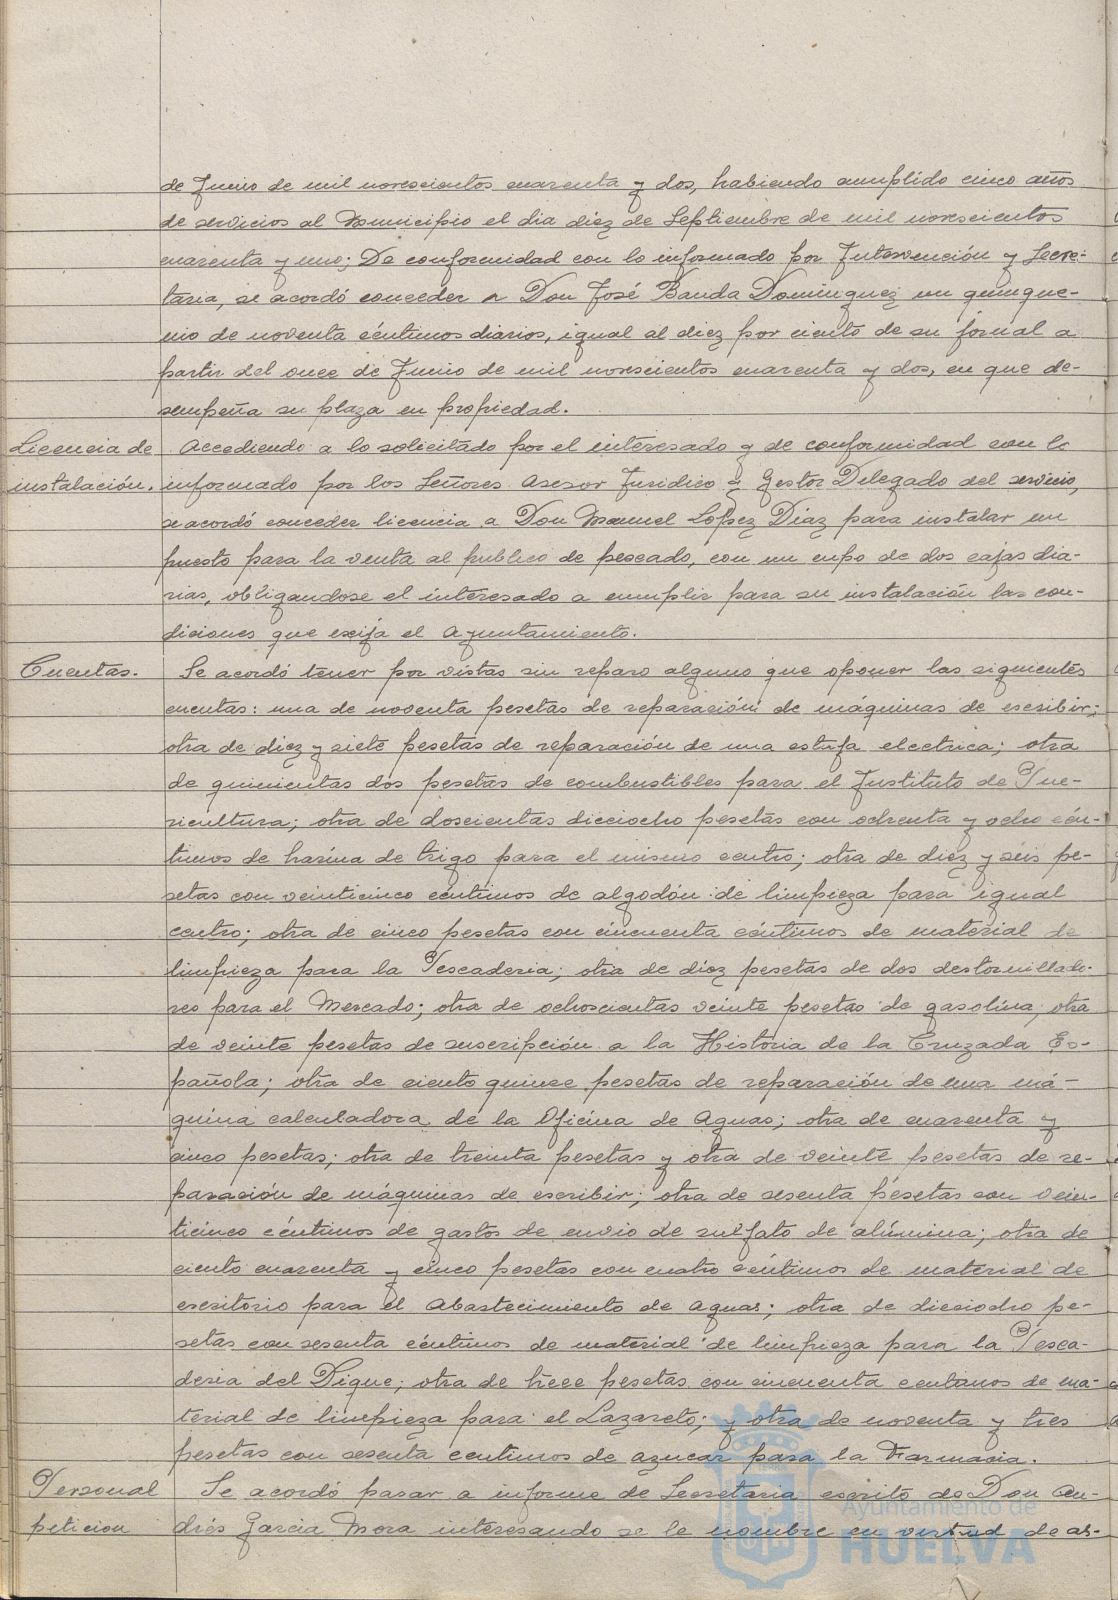 de Junio de mil novescientos cuarenta y dos, habiendo cumplido cinco años
de servicios al Municipio el dia diez de Septiembre de mil novescientos
cuarenta y uno; De conformidad con lo informado por Intervención y Secre-
taria, se acordó conceder a Don José Banda Dominguez un quinque-
nio de noventa céntimos diarios, igual al diez por ciento de su jornal a
partir del once de Junio de mil novescientos cuarenta y dos, en que de-
sempeña su plaza en propiedad.
Licencia de instalación.
Accediendo a lo solicitado por el interesado y de conformidad con lo
informado por los Señores Asesor Juridico y Gestor Delegado del servicio,
se acordó conceder licencia a Don Manuel López Díaz para instalar un
puesto para la venta al publico de pescado, con un cupo de dos cajas dia-
rias, obligandose el interesado a cumplir para su instalación las con-
diciones que exija el Ayuntamiento.
Cuentas.
Se acordó tener por vistas sin reparo alguno que oponer las siguientes
cuentas: una de noventa pesetas de reparación de máquinas de escribir;
otra de diez y siete pesetas de reparación de una estufa electrica; otra
de quinientas dos pesetas de combustibles para el Instituto de Pue-
ricultura; otra de doscientas dieciocho pesetas con ochenta y ocho cén-
timos de harina de trigo para el mismo centro; otra de diez y seis pe-
setas con veinticinco céntimos de algodón de limpieza para igual
centro; otra de cinco pesetas con cincuenta céntimos de material de
limpieza para la Pescaderia; otra de diez pesetas de dos destornillado-
res para el Mercado; otra de ochoscientas veinte pesetas de gasolina; otra
de veinte pesetas de suscripción a la Historia de la Cruzada Es-
pañola; otra de ciento quince pesetas de reparación de una má-
quina calculadora de la Oficina de Aguas; otra de cuarenta y
cinco pesetas; otra de treinta pesetas y otra de veinte pesetas de re-
paración de máquinas de escribir; otra de sesenta pesetas con vein-
ticinco céntimos de gastos de envio de sulfato de alúmina; otra de
ciento cuarenta y cinco pesetas con cuatro céntimos de material de
escritorio para el Abastecimiento de Aguas; otra de dieciocho pe-
setas con sesenta céntimos de material de limpieza para la Pesca-
deria del Dique; otra de trece pesetas con cincuenta centimos de ma-
terial de limpieza para el Lazareto; y otra de noventa y tres
pesetas con sesenta centimos de azucar para la Farmacia.
Personal peticion
Se acordó pasar a informe de Secretaria escrito de Don An-
drés Garcia Mora interesando se le nombre en virtud de as-
Ayuntamiento de
HUELVA